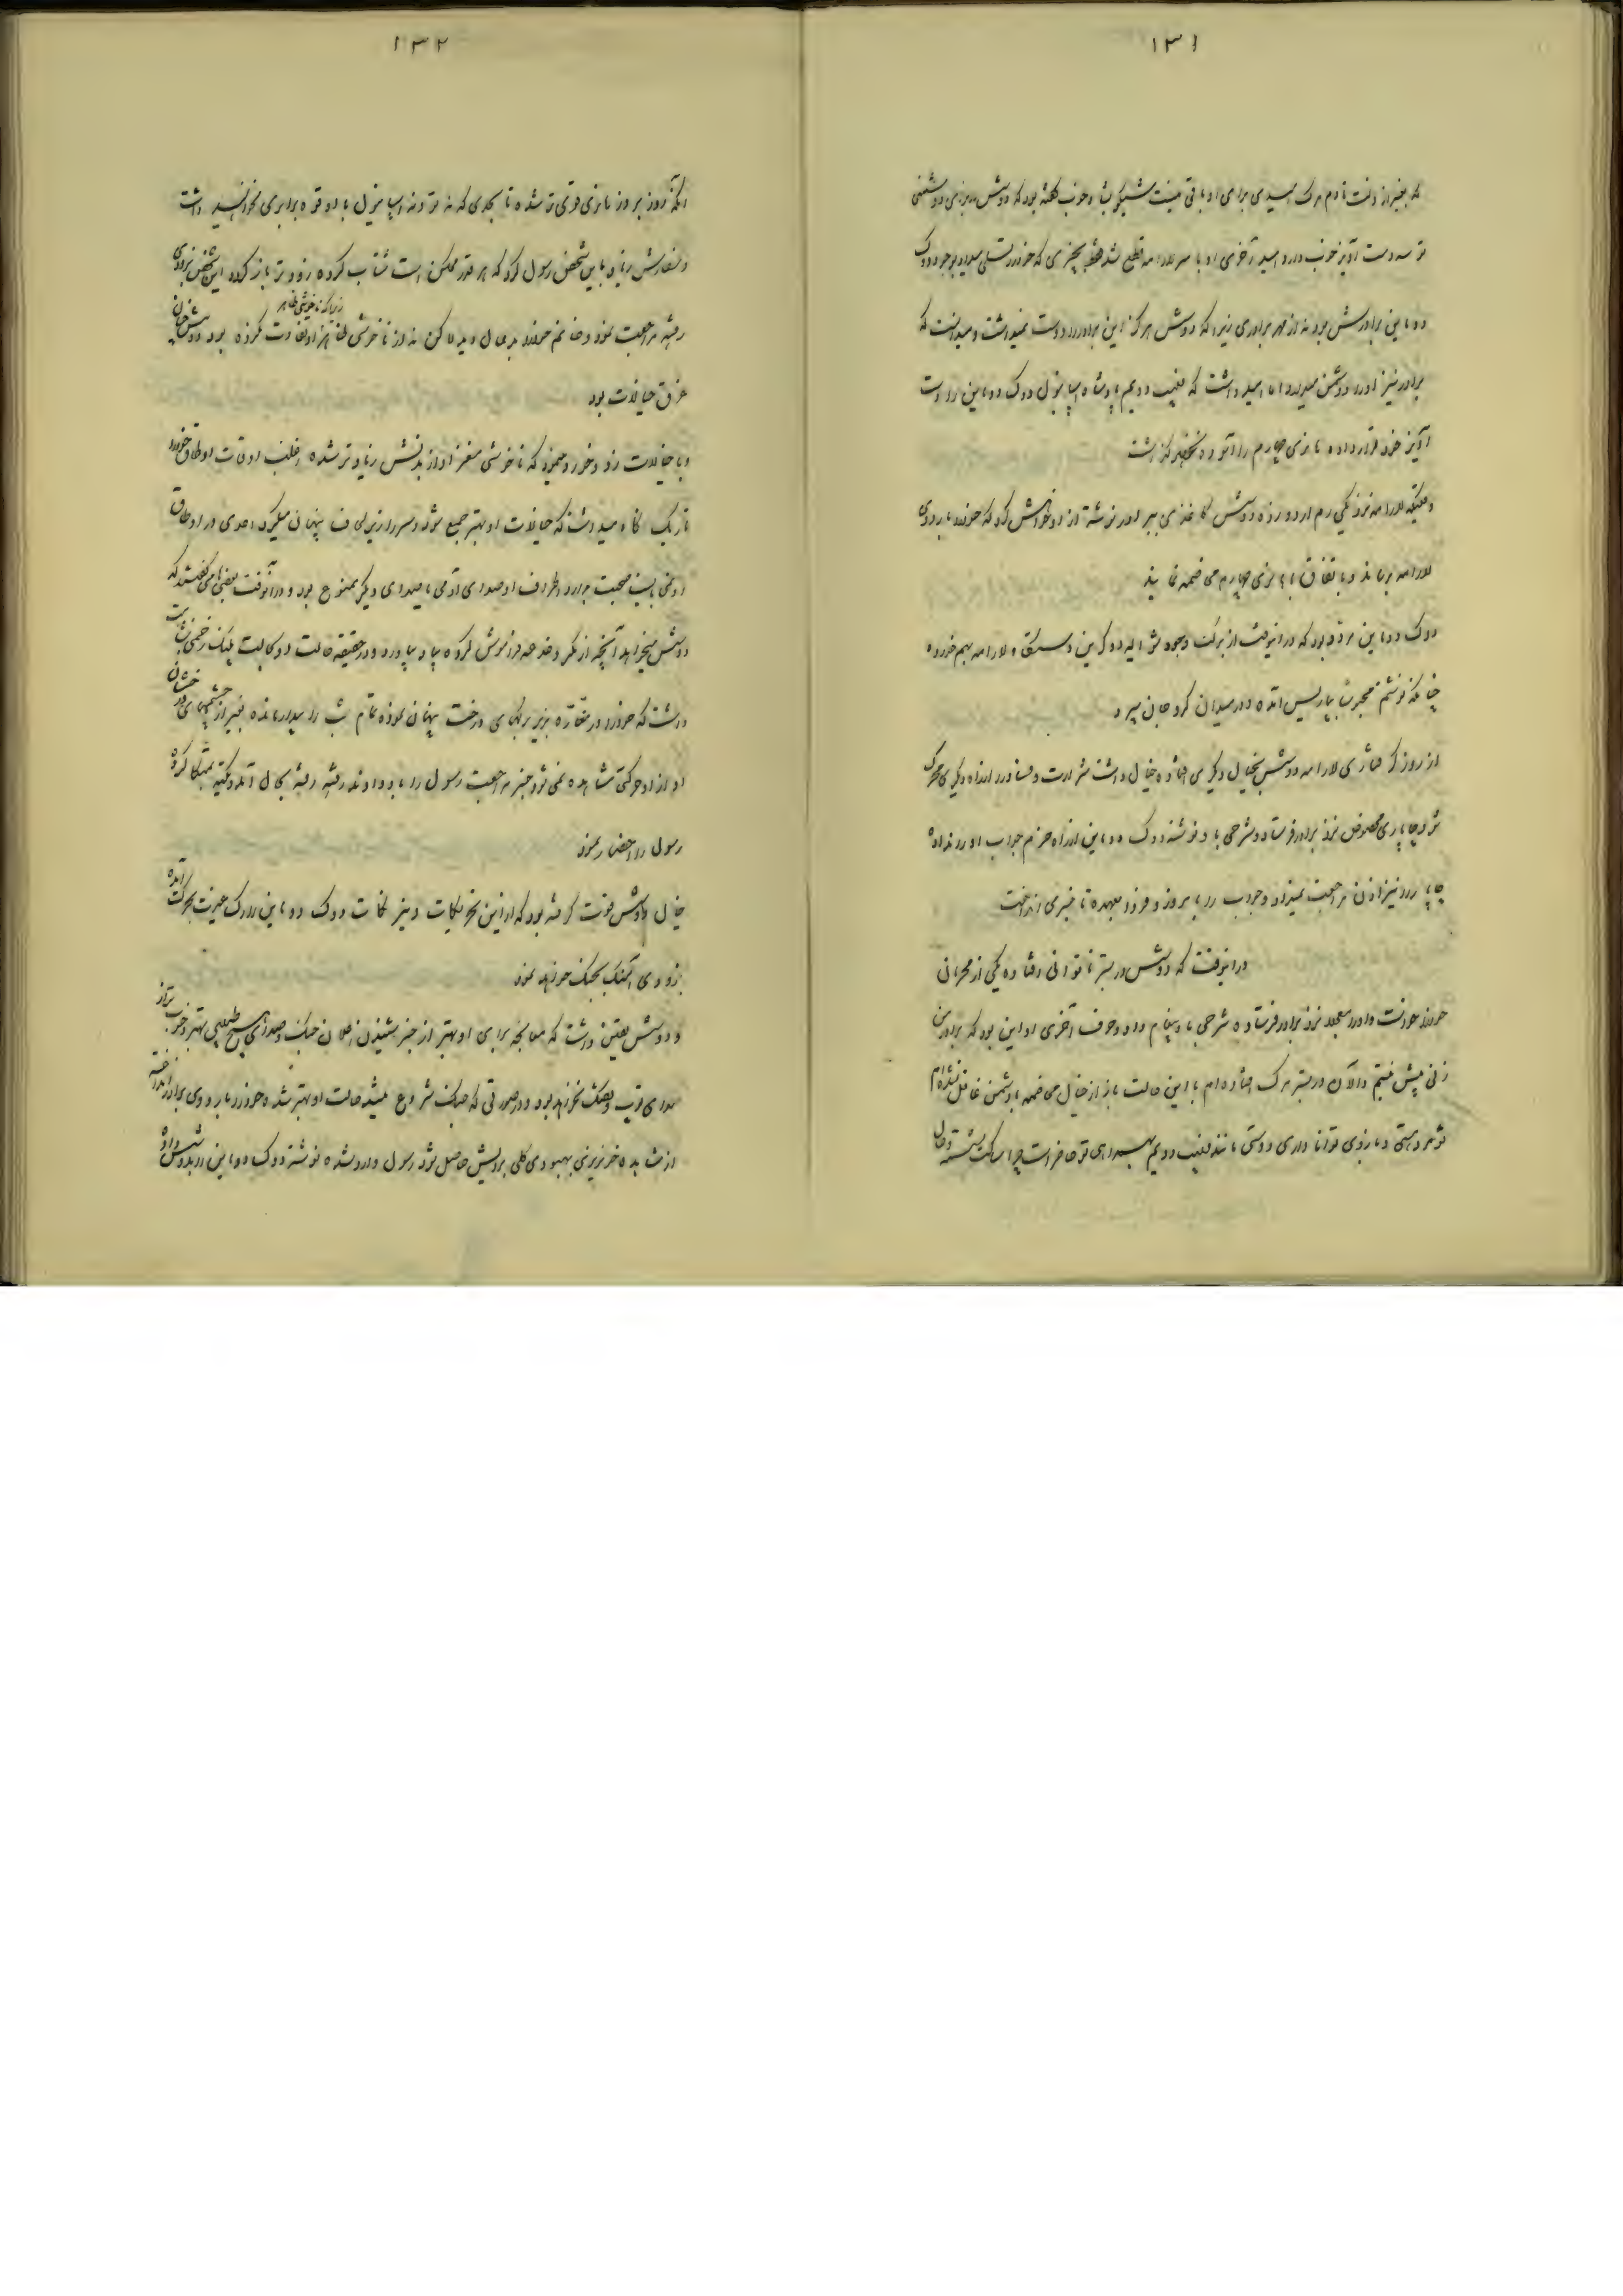 ۱۳۱
که بغیر از رفت تا دم مرک امیدی برای او باقی نیست شیکو بتا و خوب گفته بود که دوشس
تو سه دست آویز خوب دارد امید آخری او با مر لورامه قطع شد فقط بچیزی که خود را تسلی میداد بوجود دوک
دو ماین برادرش بود نه از مهر برادری زیرا که دوشس هرکز این برادر را دوست نمیداشت و میدانست که
برادر نیز او را دشمن میدارد اما امید داشت که فلیپ دویم پادشاه اسپانیول دوک دو ماین را دست
آویز خود قرار داده هانری چهارم را آسوده نخواهد گذاشت
وقتیکه لورامه نزدیکی رم اردو زده دوشس کاغذی ببرادر نوشته از او خواهش کرد که خود را باردوی
لورامه برساند و باتفاق با هانری چهارم مخاصمه نماید
دوک دو ماین مرد بود که در آنوقت از برکت وجود مشار الیه دوک این و لورامه بهم خورده
چنانکه نوشتم مجبورا بپاریس آمده و در میدان کرو جان سپرد
از روز گرفتاری لورامه دوشس بخیال دیگری افتاده خیال داشت شرارت و فساد را از راه دیگر محرک
شود چاپاری مخصوص نزد برادر فرستاد و شرحی باو نوشته دوک دو ماین از راه حزم جواب او را نداده
چاپار را نیز اذن مراجعت نمیداد و جواب را بامروز و فردا بعهده تاخیر می انداخت
در آنوقت که دوشس در بستر ناتوانی افتاده یکی از محرمان
خود را بعجله نزد برادر فرستاده شرحی باو پیغام داد و حرف آخری او این بود که برادر من
زنی بیش نیستم و الآن در بستر مرک افتاده ام با این حالت باز از خیال مخاصمه با دشمن غافل نشده ام
تو مرد هستی و بازوی توانا داری دوستی مانند فلیپ دویم بهمراهی تو حاضر است چرا ساکت نشسته و حال
۱۳۲
آنکه روز بروز هانری قوی تر شده تا بحدی که نه تو و نه اسپانیول با او قوه برابری نخواهید داشت
و سفارش زیاد باین شخص رسول کرد که هر قدر ممکن است شتاب کرده زودتر باز گردد این شخص بزودی
رفته مراجعت نمود و خانم خود را بدحال دید لاکن نه از ناخوشی ظاهر او تفاوت نکرده بود دوشس
زیرا که ناخوشی ظاهر
غرق خیالات بود
و با خیالات زد و خورد مینمود که ناخوشی مغز او از بدنش زیادتر شده اغلب اوقات اوطاق خود را
تاریک نگاه میداشت که خیالات او بهتر جمع شود و سر را زیر لحاف پنهان میکرد احدی در اوطاق
او نمی بایست صحبت بدارد اطراف او صدای آدمی یا صدای دیگر ممنوع بود و در آنوقت بعضی ها می گفتند که
دوشس میخواهد آنچه از مکر و خدعه فراموش کرده بیاد بیاورد و در حقیقه حالت او حالت پلنگ زخمی
داشت که خود را در مغاره بزیر برگهای درخت پنهان نموده تمام شب را بیدار مانده بغیر از چشمهای درخشان
او از او حرکتی مشاهده نمی شود خبر مراجعت رسول را باو دادند رفته رفته بحال آمده
رسول را احضار نمود
خیال دوشس قوت گرفته بود که از این تحریکات و نیز نکات دوک دو ماین از رک غیرت بحرکت آمده
بزودی آهنگ بجنگ خواهد نمود
و دوشس یقین داشت که معالجه برای او بهتر از خبر شنیدن اعلان جنگ و صدای هیچ طبیبی بهتر و خوب تر از
صدای توپ و تفنگ نخواهد بود در صورتی که جنگ شروع میشد حالت او بهتر شده خود را باردوی برادر انداخته
از مشاهده خونریزی بهبودی کلی برایش حاصل شود رسول وارد شده نوشته دوک دو ماین را بدوشس داد